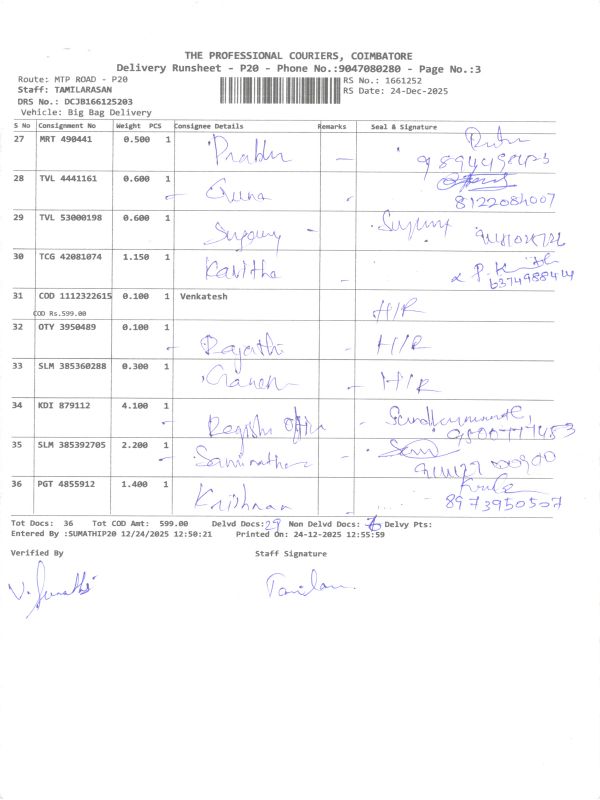 THE PROFESSIONAL COURIERS, COIMBATORE
Delivery Runsheet - P20 - Phone No.:9047080280 - Page No.:3
Route: MTP ROAD - P20
RS No.: 1661252
Staff: TAMILARASAN
RS Date: 24-Dec-2025
DRS No.: DCJB166125203
Vehicle: Big Bag Delivery
S No Consignment No Weight PCS Consignee Details Remarks Seal & Signature
27 MRT 490441 0.500 1 Prabhu
28 TVL 4441161 0.600 1
8122084007
29 TVL 53000198 0.600 1
30 TCG 42081074 1.150 1 Kavitha
31 COD 1112322615 0.100 1 Venkatesh H/R
COD Rs.599.00
32 OTY 3950489 0.100 1 H/R
33 SLM 385360288 0.300 1 Ganesh H/R
34 KDI 879112 4.100 1
35 SLM 385392705 2.200 1
36 PGT 4855912 1.400 1 Krishnan 8973950507
Tot Docs: 36 Tot COD Amt: 599.00 Delvd Docs:29 Non Delvd Docs: Delvy Pts:
Entered By :SUMATHIP20 12/24/2025 12:50:21 Printed On: 24-12-2025 12:55:59
Verified By Staff Signature
V. Sumathi